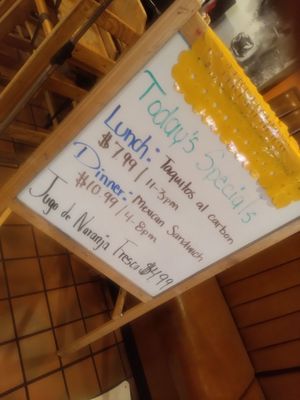 Today's Specials
Lunch: Taquitos al carbon
$7.99/11-3pm
Dinner: Mexican Sandwich
$10.99/4-8pm
Jugo de Naranja Fresco $4.99